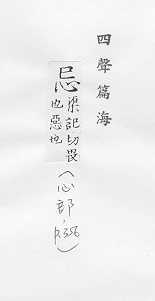 四聲篇海
忌渠記切畏
也惡也
(心部，p.356)